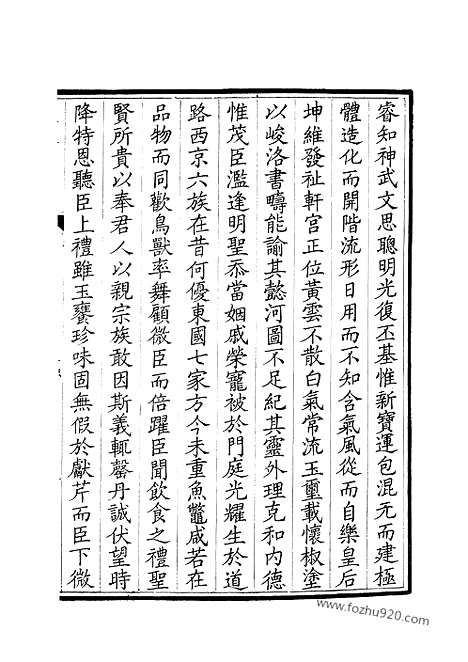 睿知神武文思聰明光復丕基惟新寶運包混元而建極
體造化而開階流形日用而不知含氣風從而自樂皇后
坤維發祉軒宮正位黃雲不散白氣常流玉璽載懷椒塗
以峻洛書疇能諭其懿河圖不足紀其靈外理克和内德
惟茂臣濫逢明聖忝當姻戚榮寵被於門庭光耀生於道
路西京六族在昔何優東國七家方今未重魚鼈咸若在
品物而同歡鳥獸率舞顧微臣而倍躍臣聞飲食之禮聖
賢所貴以奉君人以親宗族敢因斯義輒罄丹誠伏望時
降特恩聽臣上禮雖玉饔珍味固無假於獻芹而臣下微
www.fozhu920.com